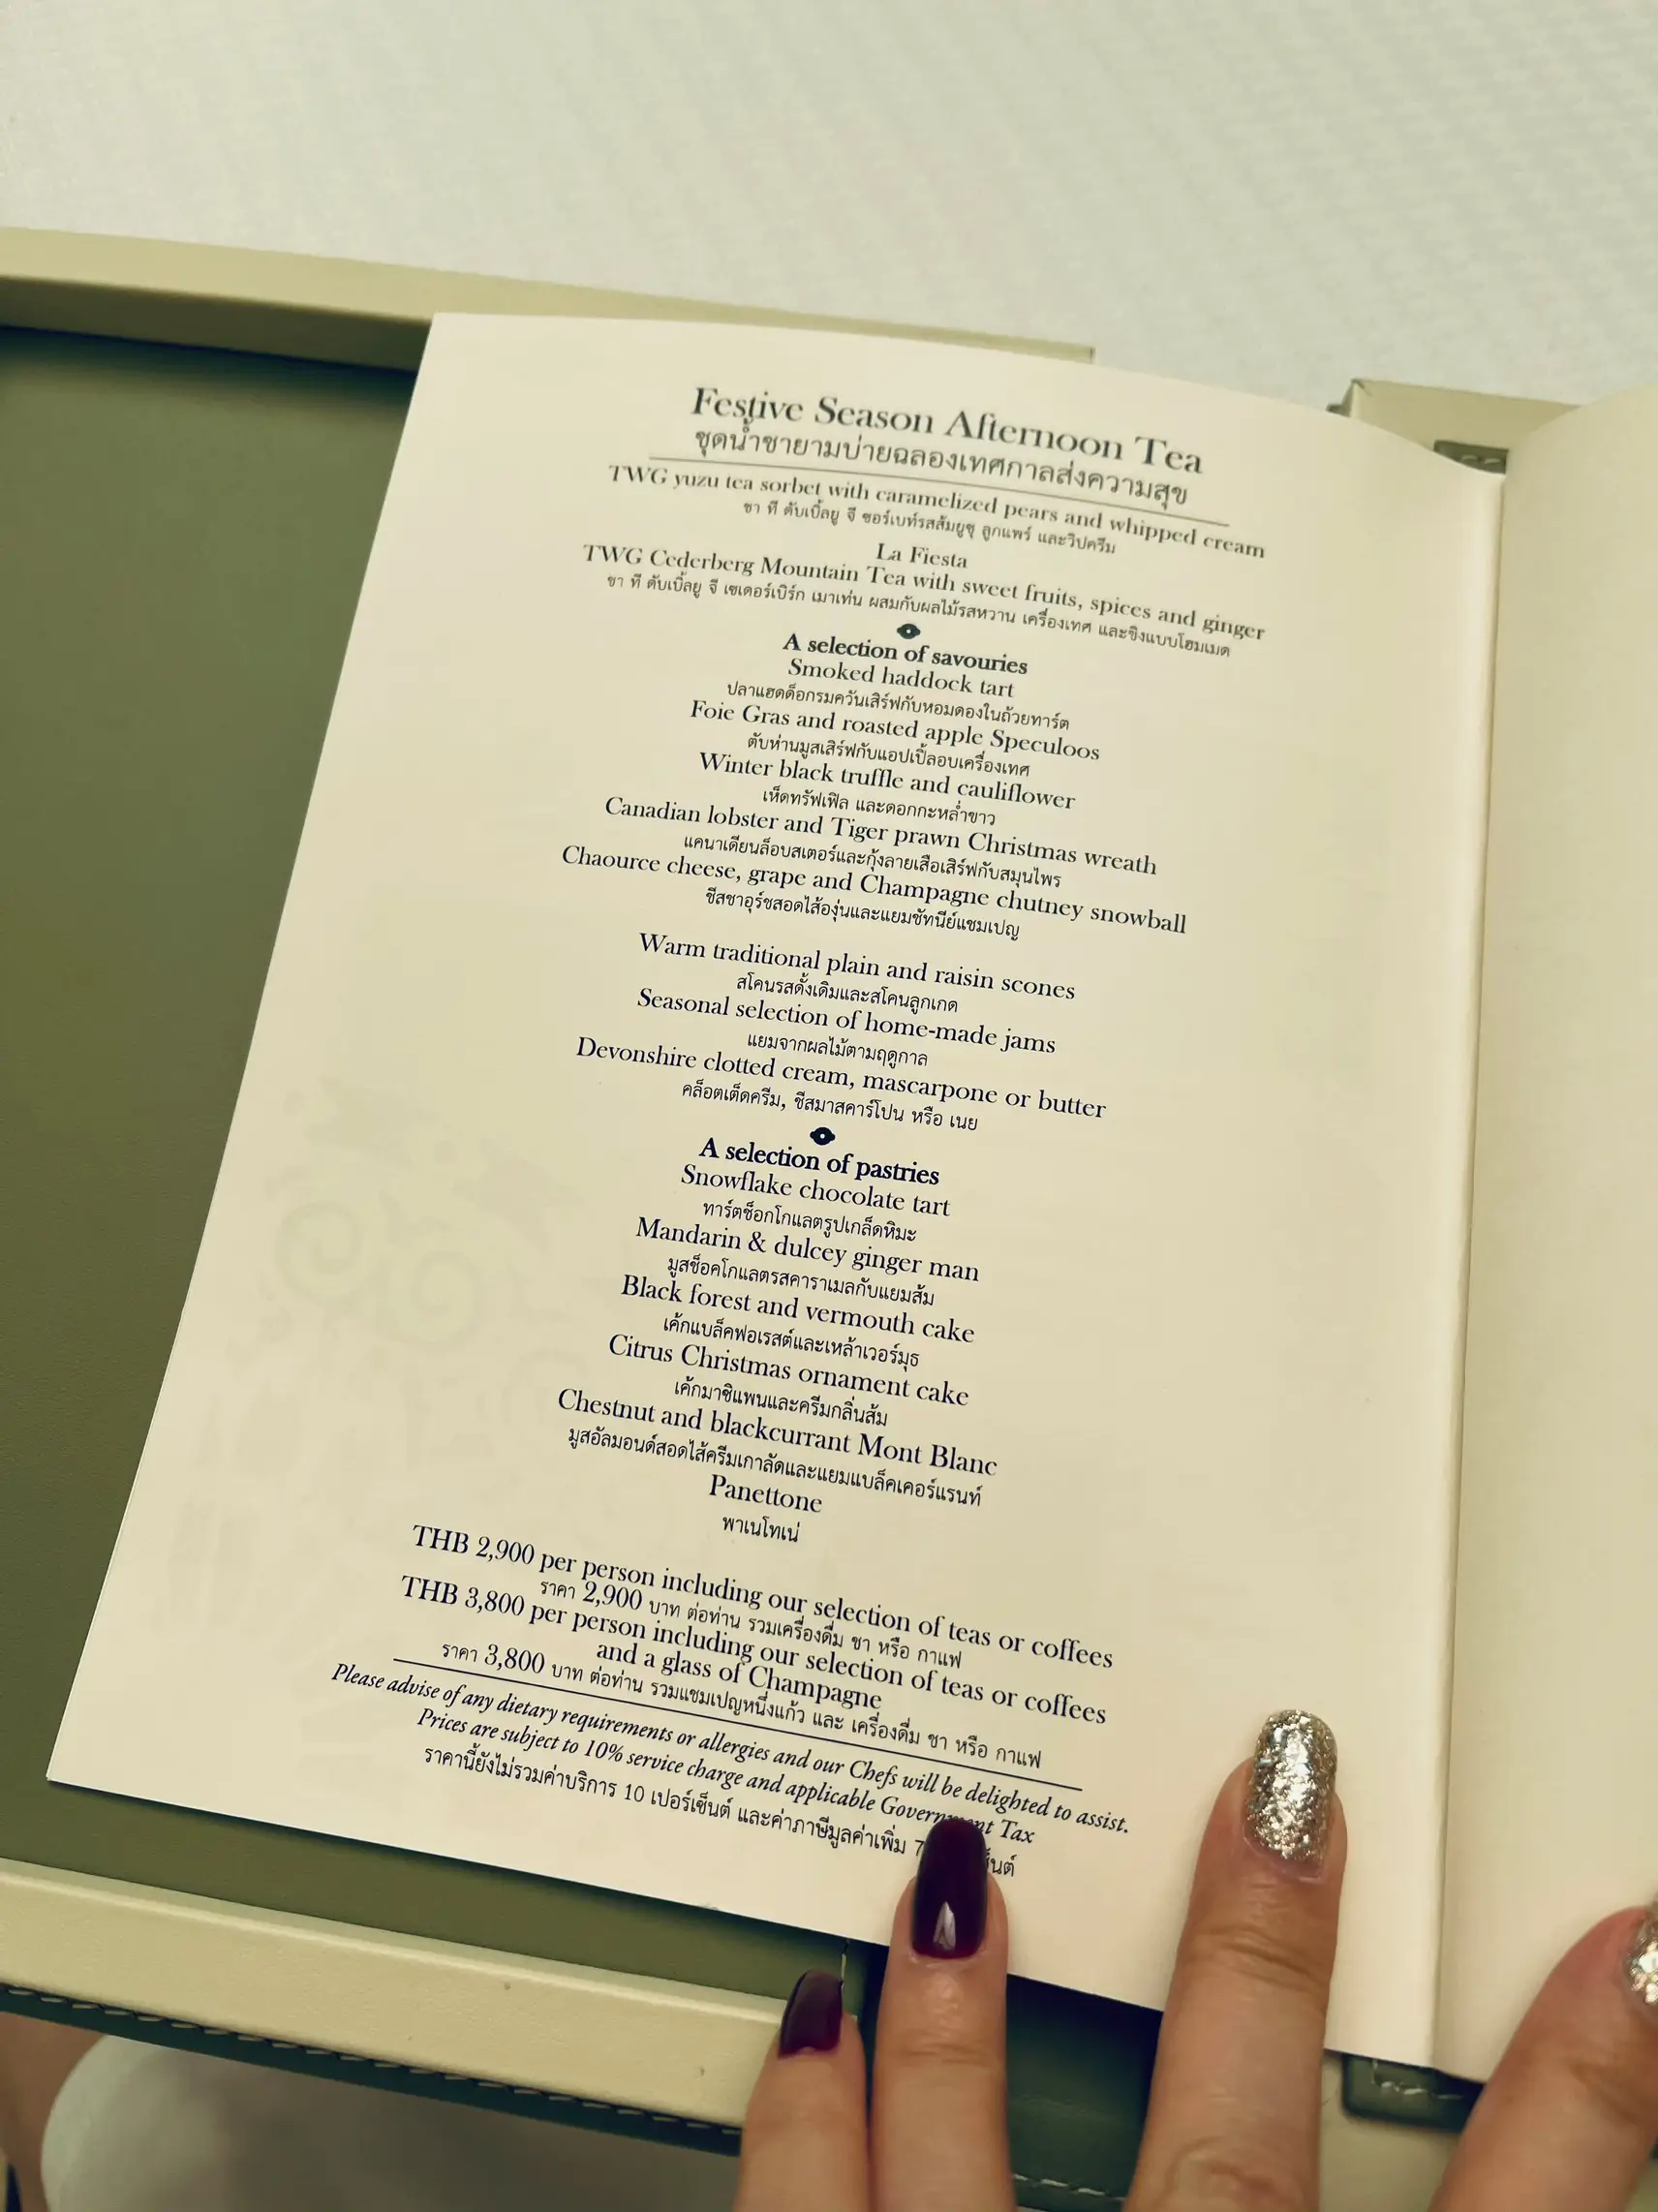 Festive Season Afternoon Tea
ชุดน้ำชายามบ่ายฉลองเทศกาลส่งความสุข
TWG yuzu tea sorbet with caramelized pears and whipped cream
ชา ที ดับเบิ้ลยู จี ซอร์เบท์รสส้มยูซุ ลูกแพร์ และวิปครีม
La Fiesta
TWG Cederberg Mountain Tea with sweet fruits, spices and ginger
ชา ที ดับเบิ้ลยู จี เซเดอร์เบิร์ก เมาเท่น ผสมกับผลไม้รสหวาน เครื่องเทศ และขิงแบบโฮมเมด
A selection of savouries
Smoked haddock tart
ปลาแฮดด็อกรมควันเสิร์ฟกับหอมดองในถ้วยทาร์ต
Foie Gras and roasted apple Speculoos
ตับห่านมูสเสิร์ฟกับแอปเปิ้ลอบเครื่องเทศ
Winter black truffle and cauliflower
เห็ดทรัฟเฟิล และดอกกะหล่ำขาว
Canadian lobster and Tiger prawn Christmas wreath
แคนาเดียนล็อบสเตอร์และกุ้งลายเสือเสิร์ฟกับสมุนไพร
Chaource cheese, grape and Champagne chutney snowball
ชีสชาอุร์ซสอดไส้องุ่นและแยมชัทนีย์แชมเปญ
Warm traditional plain and raisin scones
สโคนรสดั้งเดิมและสโคนลูกเกด
Seasonal selection of home-made jams
แยมจากผลไม้ตามฤดูกาล
Devonshire clotted cream, mascarpone or butter
คล็อตเต็ดครีม, ชีสมาสคาร์โปน หรือ เนย
A selection of pastries
Snowflake chocolate tart
ทาร์ตช็อกโกแลตรูปเกล็ดหิมะ
Mandarin & dulcey ginger man
มูสช็อคโกแลตรสคาราเมลกับแยมส้ม
Black forest and vermouth cake
เค้กแบล็คฟอเรสต์และเหล้าเวอร์มุธ
Citrus Christmas ornament cake
เค้กมาซิแพนและครีมกลิ่นส้ม
Chestnut and blackcurrant Mont Blanc
มูสอัลมอนด์สอดไส้ครีมเกาลัดและแยมแบล็คเคอร์แรนท์
Panettone
พาเนโทเน่
THB 2,900 per person including our selection of teas or coffees
ราคา 2,900 บาท ต่อท่าน รวมเครื่องดื่ม ชา หรือ กาแฟ
THB 3,800 per person including our selection of teas or coffees
and a glass of Champagne
ราคา 3,800 บาท ต่อท่าน รวมแชมเปญหนึ่งแก้ว และ เครื่องดื่ม ชา หรือ กาแฟ
Please advise of any dietary requirements or allergies and our Chefs will be delighted to assist.
Prices are subject to 10% service charge and applicable Government Tax
ราคานี้ยังไม่รวมค่าบริการ 10 เปอร์เซ็นต์ และค่าภาษีมูลค่าเพิ่ม 7